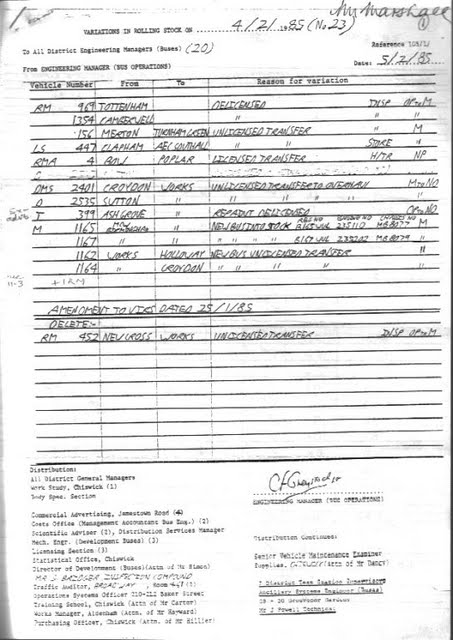 Mr Marshall
①
VARIATIONS IN ROLLING STOCK ON 4/2/1985 (No 23)
To All District Engineering Managers (Buses) (20)
Reference 103/1/
From ENGINEERING MANAGER (BUS OPERATIONS)
Date: 5/2/85
Vehicle Number From To Reason for variation
RM 969 TOTTENHAM DELICENSED DISP OP to M
1354 CAMBERWELL " " "
156 MERTON TURNHAM GREEN UNLICENSED TRANSFER " M
LS 447 CLAPHAM AEC SOUTHALL " " STORE "
RMA 4 BOW POPLAR LICENSED TRANSFER H/TR NP
DMS 2401 CROYDON WORKS UNLICENSED TRANSFER TO OVERHAUL M to NO
D 2535 SUTTON " " " " "
T 399 ASH GROVE REPAINT DELICENSED OP to NO
M 1165 WORKS NEW BUS INTO STOCK M
1167 " " " " " "
1162 WORKS HOLLOWAY NEW BUS UNLICENSED TRANSFER "
1164 " CROYDON " " " "
+ 1 RM
AMENDMENT TO VIRS DATED 25/1/85
DELETE:-
RM 452 NEW CROSS WORKS UNLICENSED TRANSFER DISP OP to M
Distribution:
All District General Managers
Work Study, Chiswick (1)
Body Spec. Section
ENGINEERING MANAGER (BUS OPERATIONS)
Commercial Advertising, Jamestown Road
Costs Office (Management Accountant Bus Eng.) (2)
Scientific Adviser (2), Distribution Services Manager
Mech. Engr. (Development Buses) (3)
Licensing Section (3)
Statistical Office, Chiswick
Director of Development (Buses)(Attn of Mr Simon)
MR J. BADGER INSPECTION COMPOUND
Traffic Auditor, BROADWAY, Room
Operations Systems Officer 210-212 Baker Street
Training School, Chiswick (Attn of Mr Carter)
Works Manager, Aldenham (Attn. of Mr Hayward)
Purchasing Officer, Chiswick (Attn. of Mr Hillier)
Distribution Continues:
Senior Vehicle Maintenance Examiner
Supplies, (Attn of Mr Dancy)
District Team Section Supervisors
Ancillary Systems Engineer (Buses)
Mr J Powell Technical